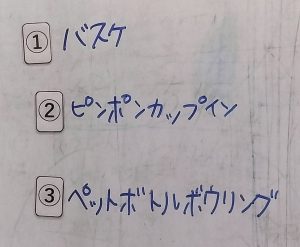 ① バスケ
② ピンポンカップイン
③ ペットボトルボウリング